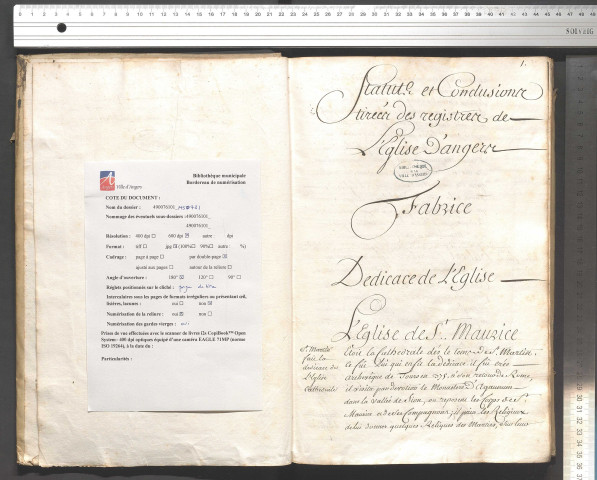 Bibliothèque municipale
Bordereau de numérisation
Ville d'Angers
COTE DU DOCUMENT :
Nom du dossier : 490076101_MS0761
Nommage des éventuels sous-dossiers : 490076101_
490076101_
Résolution : 400 dpi ☐ 600 dpi ☒ autre : dpi
Format : tiff ☐ jpg ☒ (100% ☐ 90% ☐ autre : %)
Cadrage : page à page ☐ par double-page ☒
ajusté aux pages ☐ autour de la reliure ☐
Angle d'ouverture : 180° ☒ 120° ☐ 90° ☐
Réglets positionnés sur le cliché : page de titre
Intercalaires sous les pages de formats irréguliers ou présentant
lisières, lacunes : oui ☐ non ☒
Numérisation de la reliure : oui ☒ non ☐
Numérisation des gardes vierges : oui
Prises de vue effectuées avec le scanner de livres i2s CopiBook™ Open
System- 600 dpi optiques équipé d'une caméra EAGLE 71MP (norme
ISO 19264), à la date du :
Particularités :
1.
Statuts et Conclusions
tirées des registres de
L'Eglise D'angers
VILLE D'ANGERS
Fabrice
Dedicace de L'Eglise
L'Eglise de St. Maurice
St. Martin
fait la
dedicace de
l'Eglise
Cathedrale
étoit la Cathedrale dès le tems de St. Martin.
ce fut lui qui en fit la dédicace il fut créé
archevêque de Tours en 375. il s'en retourna de Rome,
il visita par devotion le Monastere d'Agaunum
dans la vallée de Sion, ou reposent les Corps de St.
Maurice et de ses Compagnons; il pria les Religieux
de lui donner quelques Reliques des Martirs, sur leur